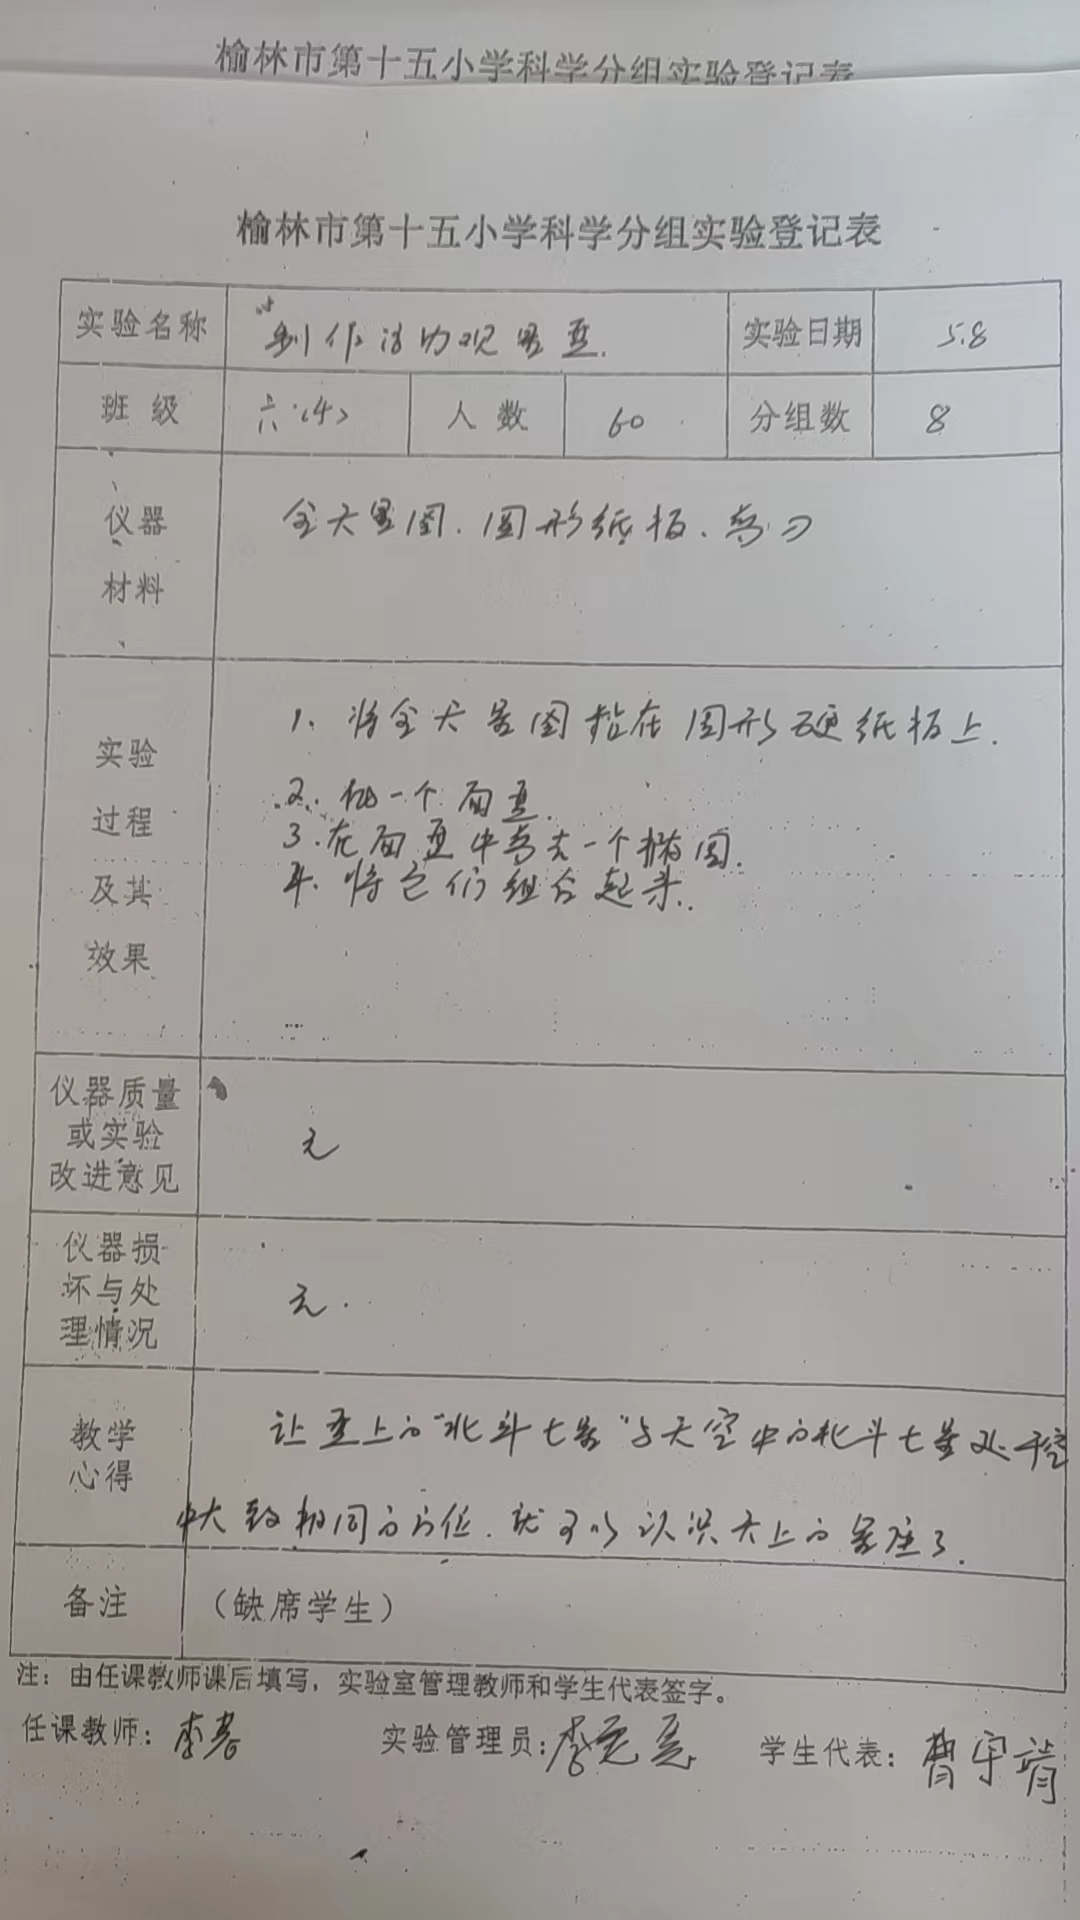 榆林市第十五小学科学分组实验登记表
榆林市第十五小学科学分组实验登记表
实验名称 制作活动观星盘. 实验日期 5.8
班 级 六(4) 人 数 60 分组数 8
仪器
材料
全天星图、圆形纸板、剪刀
实验
过程
及其
效果
1. 将全天星图粘在圆形硬纸板上.
2. 做一个面盘.
3. 在面盘中剪去一个椭圆.
4. 将它们组合起来.
仪器质量
或实验
改进意见
无
仪器损
坏与处
理情况
无.
教学
心得
让盘上的“北斗七星”与天空中的北斗七星处于空
中大致相同的方位.就可以认识天上的星座了.
备注 (缺席学生)
注：由任课教师课后填写，实验室管理教师和学生代表签字。
任课教师： 实验管理员： 学生代表：曹宇